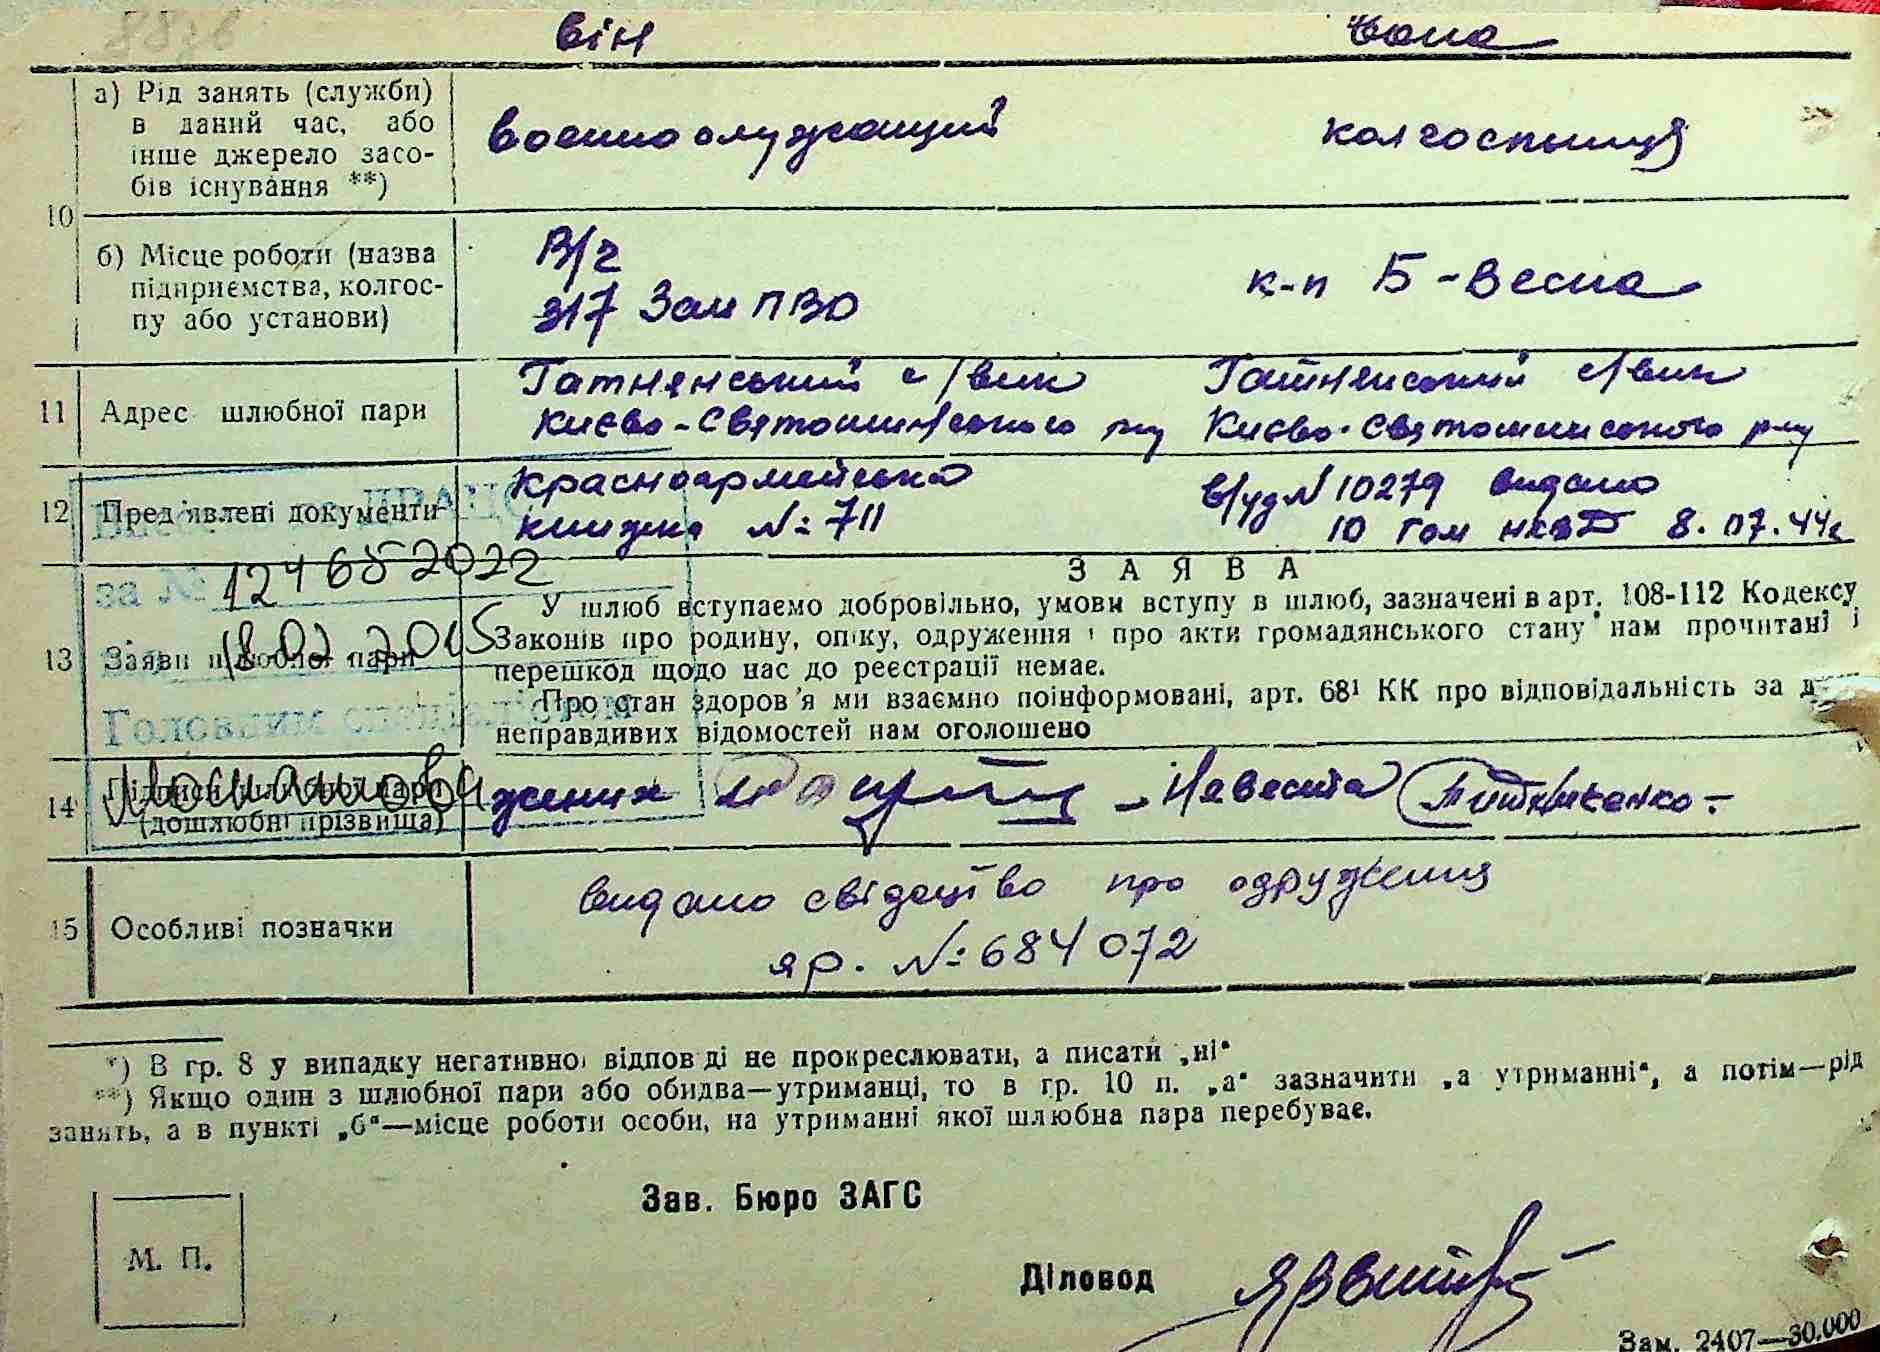 8836
Він Вона
а) Рід занять (служби)
в даний час, або
інше джерело засо-
бів існування **)
военнослужащий колгоспниця
10
б) Місце роботи (назва
підприємства, колгос-
пу або установи)
В/г
317 Зам ПВО
к-п Б-Весна
11 Адрес шлюбної пари
Гатнянський с/вик Гатнянський с/вик
Києво-Святошинського р-ну Києво-Святошинського р-ну
12 Пред'явлені документи
Красноармейська
книжка №711
в/уд №10279 видано
10 гом НКВД 8.07.44г
за № 12465 2022
18.02.2015
Головним спеціалістом
13 Заяви шлюбної пари
ЗАЯВА
У шлюб вступаємо добровільно, умови вступу в шлюб, зазначені в арт. 108-112 Кодексу
Законів про родину, опіку, одруження і про акти громадянського стану нам прочитані і
перешкод щодо нас до реєстрації немає.
Про стан здоров'я ми взаємно поінформовані, арт. 68¹ КК про відповідальність за
неправдивих відомостей нам оголошено
14 Підписи шлюбної пари
(дошлюбні прізвища)
жених Невеста
15 Особливі позначки
видано свідоцтво про одруження
яр. №684072
*) В гр. 8 у випадку негативної відповіді не прокреслювати, а писати „ні"
**) Якщо один з шлюбної пари або обидва—утриманці, то в гр. 10 п. „а" зазначити „а утриманні", а потім—рід
занять, а в пункті „б"—місце роботи особи, на утриманні якої шлюбна пара перебуває.
Зав. Бюро ЗАГС
М. П.
Діловод
Зам. 2407—30.000